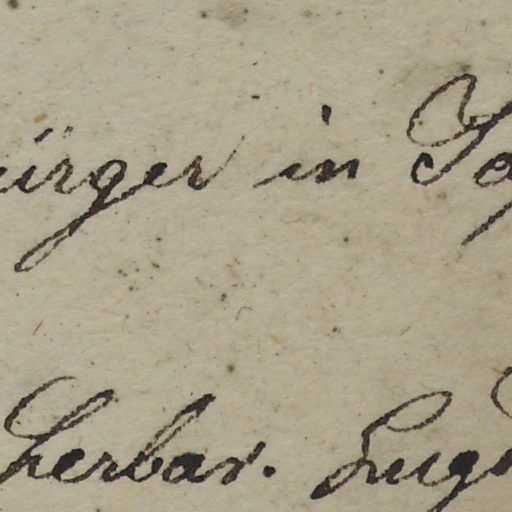 ürger in Ja
Herbar. Lugd